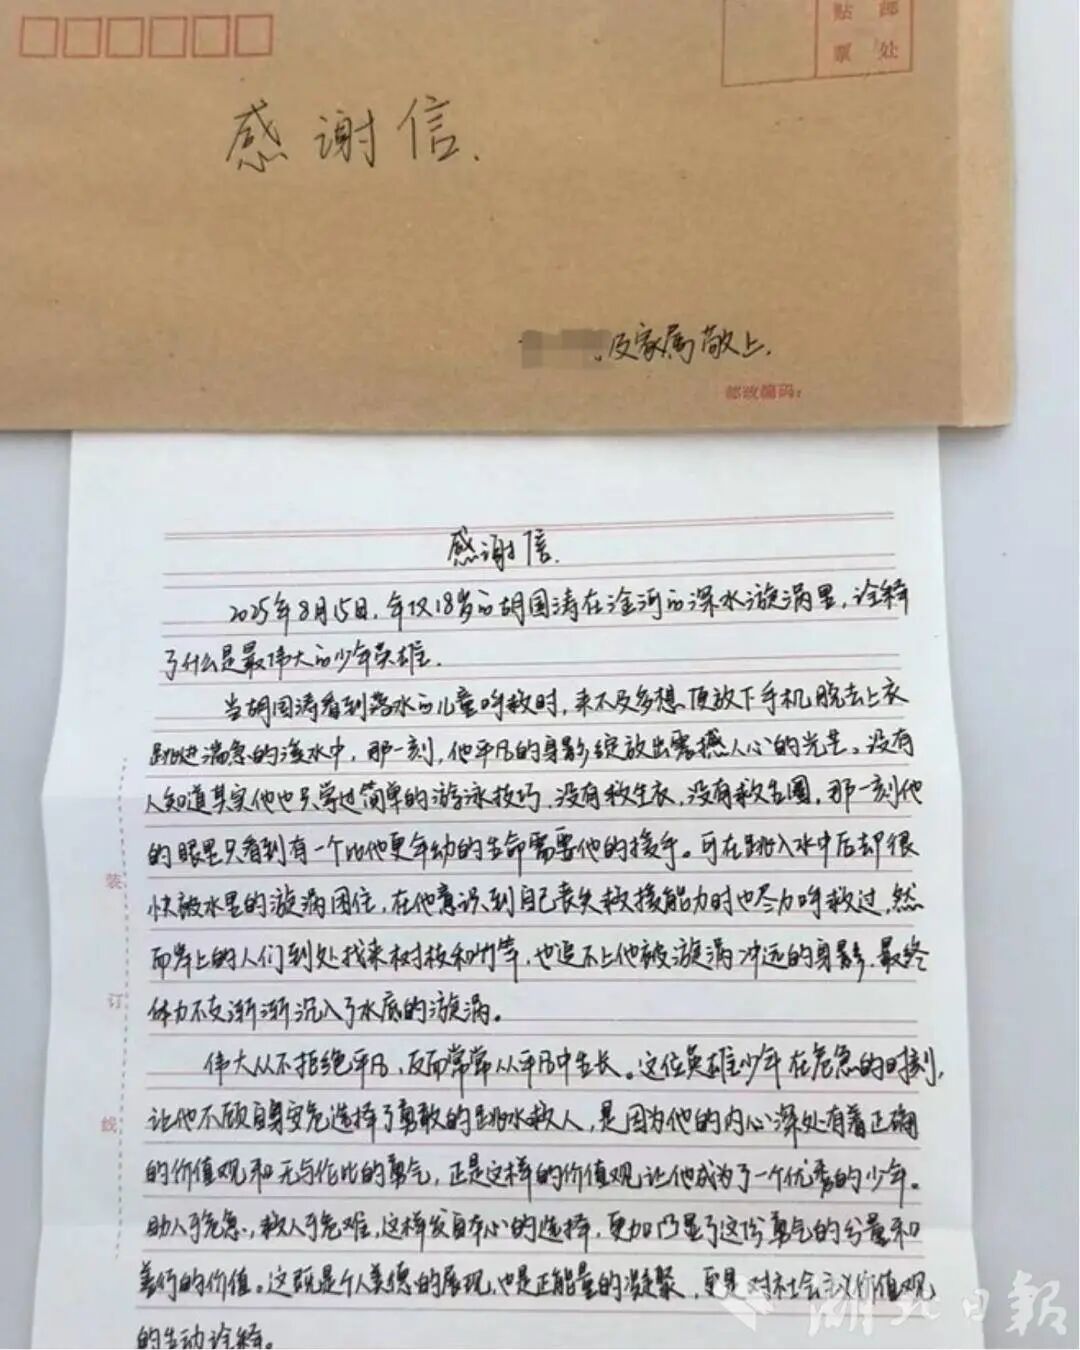 贴 邮
票 处
感谢信.
及家属敬上.
邮政编码:
感谢信.
2025年8月15日,年仅18岁的胡国涛在淦河的深水漩涡里,诠释
了什么是最伟大的少年英雄.
当胡国涛看到落水的儿童呼救时,来不及多想便放下手机脱去上衣
跳进湍急的深水中,那一刻,他平凡的身影绽放出震撼人心的光芒。没有
人知道其实他也只学过简单的游泳技巧,没有救生衣,没有救生圈,那一刻他
的眼里只看到有一个比他更年幼的生命需要他的援手。可在跳入水中后却很
快被水里的漩涡困住,在他意识到自己丧失救援能力时也尽力呼救过,然
而岸上的人们到处找来树枝和竹竿,也追不上他被漩涡冲远的身影,最终
体力不支渐渐沉入了水底的漩涡。
伟大从不拒绝平凡,反而常常从平凡中生长。这位英雄少年在危急的时刻,
让他不顾自身安危选择了勇敢的跳水救人,是因为他的内心深处有着正确
的价值观和无与伦比的勇气,正是这样的价值观让他成为了一个优秀的少年。
助人于危急,救人于危难,这样发自本心的选择,更加凸显了这份勇气的分量和
善行的价值。这既是个人美德的展现,也是正能量的凝聚,更是对社会主义价值观
的生动诠释。
装
订
线
湖北日报